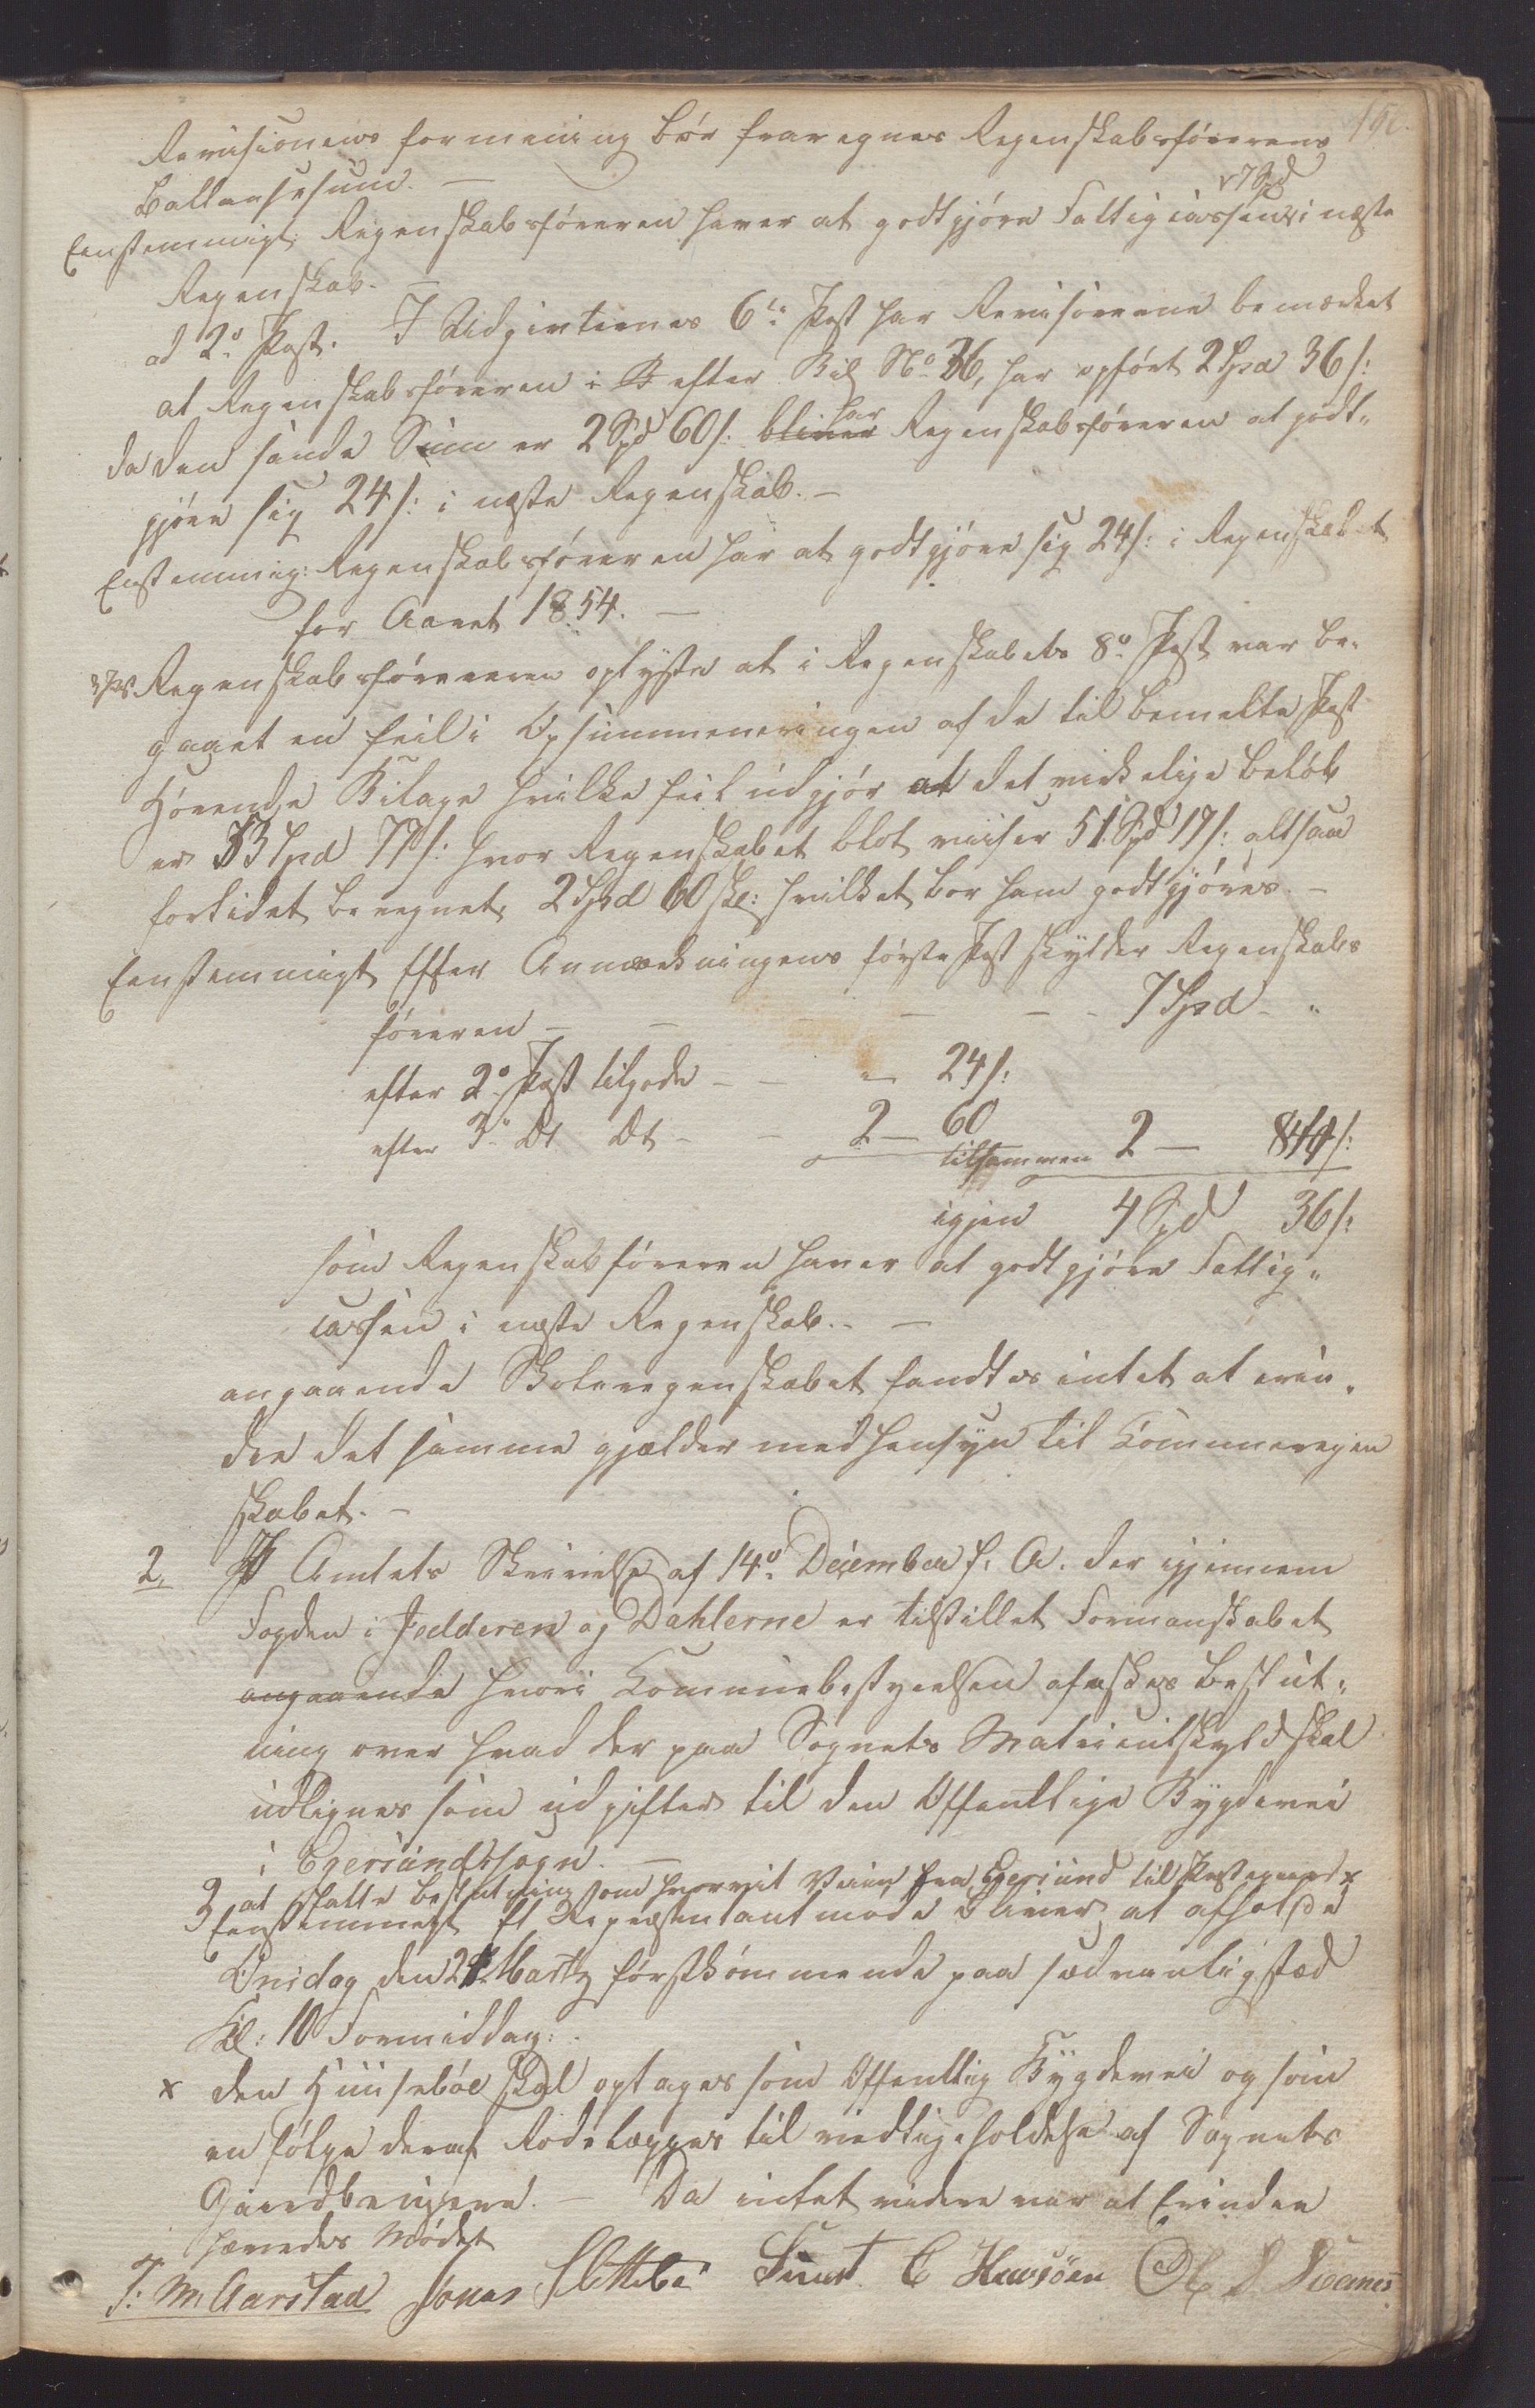 Revisionens formening bør fraregnes Regenskabsførerens
Ballansesum. —
Eenstemmigt: Regenskabsføreren haver at godtgjøre Fattigcassen 7 Spd i næste
Regenskab. —
ad 2º Post. I Udgivternes 6te Post har Revisorerne bemærket
at Regenskabsføreren i efter Bil Nº 36, har opført 2 Spd 36 s:
da den sande Sum er 2 Spd 60 s: bliver har Regenskabsføreren at godt„
gjøre sig 24 s: i næste Regenskab. —
Enstemmig: Regenskabsføreren har at godtgjøre sig 24 s: i Regenskabet
for Aaret 1854. —
Regenskabsføreren oplyste at i Regenskabets 8º Post var be„
gaaet en feil i Opsummeringen af de til bemelte Post
hørende Bilage hvilke feil udgjør at det virkelige beløb
er 53 Spd 77 s: hvor Regenskabet blot viiser 51 Spd 17 s: altsaa
forlidet beregnet, 2 Spd 60 sk: hvilket bør ham godtgjøres. —
Eenstemmigt Efter Anmærkningens første Post skylder Regenskabs
føreren — — — — 7 Spd „
efter 2º Post tilgode — — „ 24 s:
efter 3º Dt Dt — — 2 — 60
tilsammen 2 — 84 s:
igjen 4 Spd 36 s:
som Regenskabsføreren haver at godtgjøre Fattig„
cassen i næste Regenskab. —
angaaende Skoleregenskabet fandtes intet at erin„
dre det samme gjælder med hensyn til Communeregen
skabet. —
2, Amtets Skrivelse af 14º December f. A. der igjennem
Fogden i Jedderen og Dahlerne er tilstillet Formanskabet
angaaende hvori Communebestyrelsen afæskes beslut„
ning over hvad der paa Sognets Matriculskyld skal
udlignes som udgifter til den Offentlige Bygdevei
i Egersundsogn. —
3 at fatte beslutning om hvorvit Veien fra Egersund til Præstegaard x
Eenstemmigt Et Repræsentantmøde bliver at afholde
Onsdag den 21 Martz førstkommende paa sædvanlig stæd
Kl: 10 Formiddag:
x den Huusebøe skal optages som Offentlig Bygdevei og som
en følge deraf Rodelægges til vedligeholdelse af Sognets
Gaardbrugere. — Da intet videre var at Erindre
hævedes Mødet
T. M. Aarstad Jonas Slettebø Svend C Hansøen Ol S Svanes